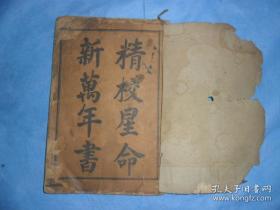 精校星命
新萬年書
孔夫子旧书网